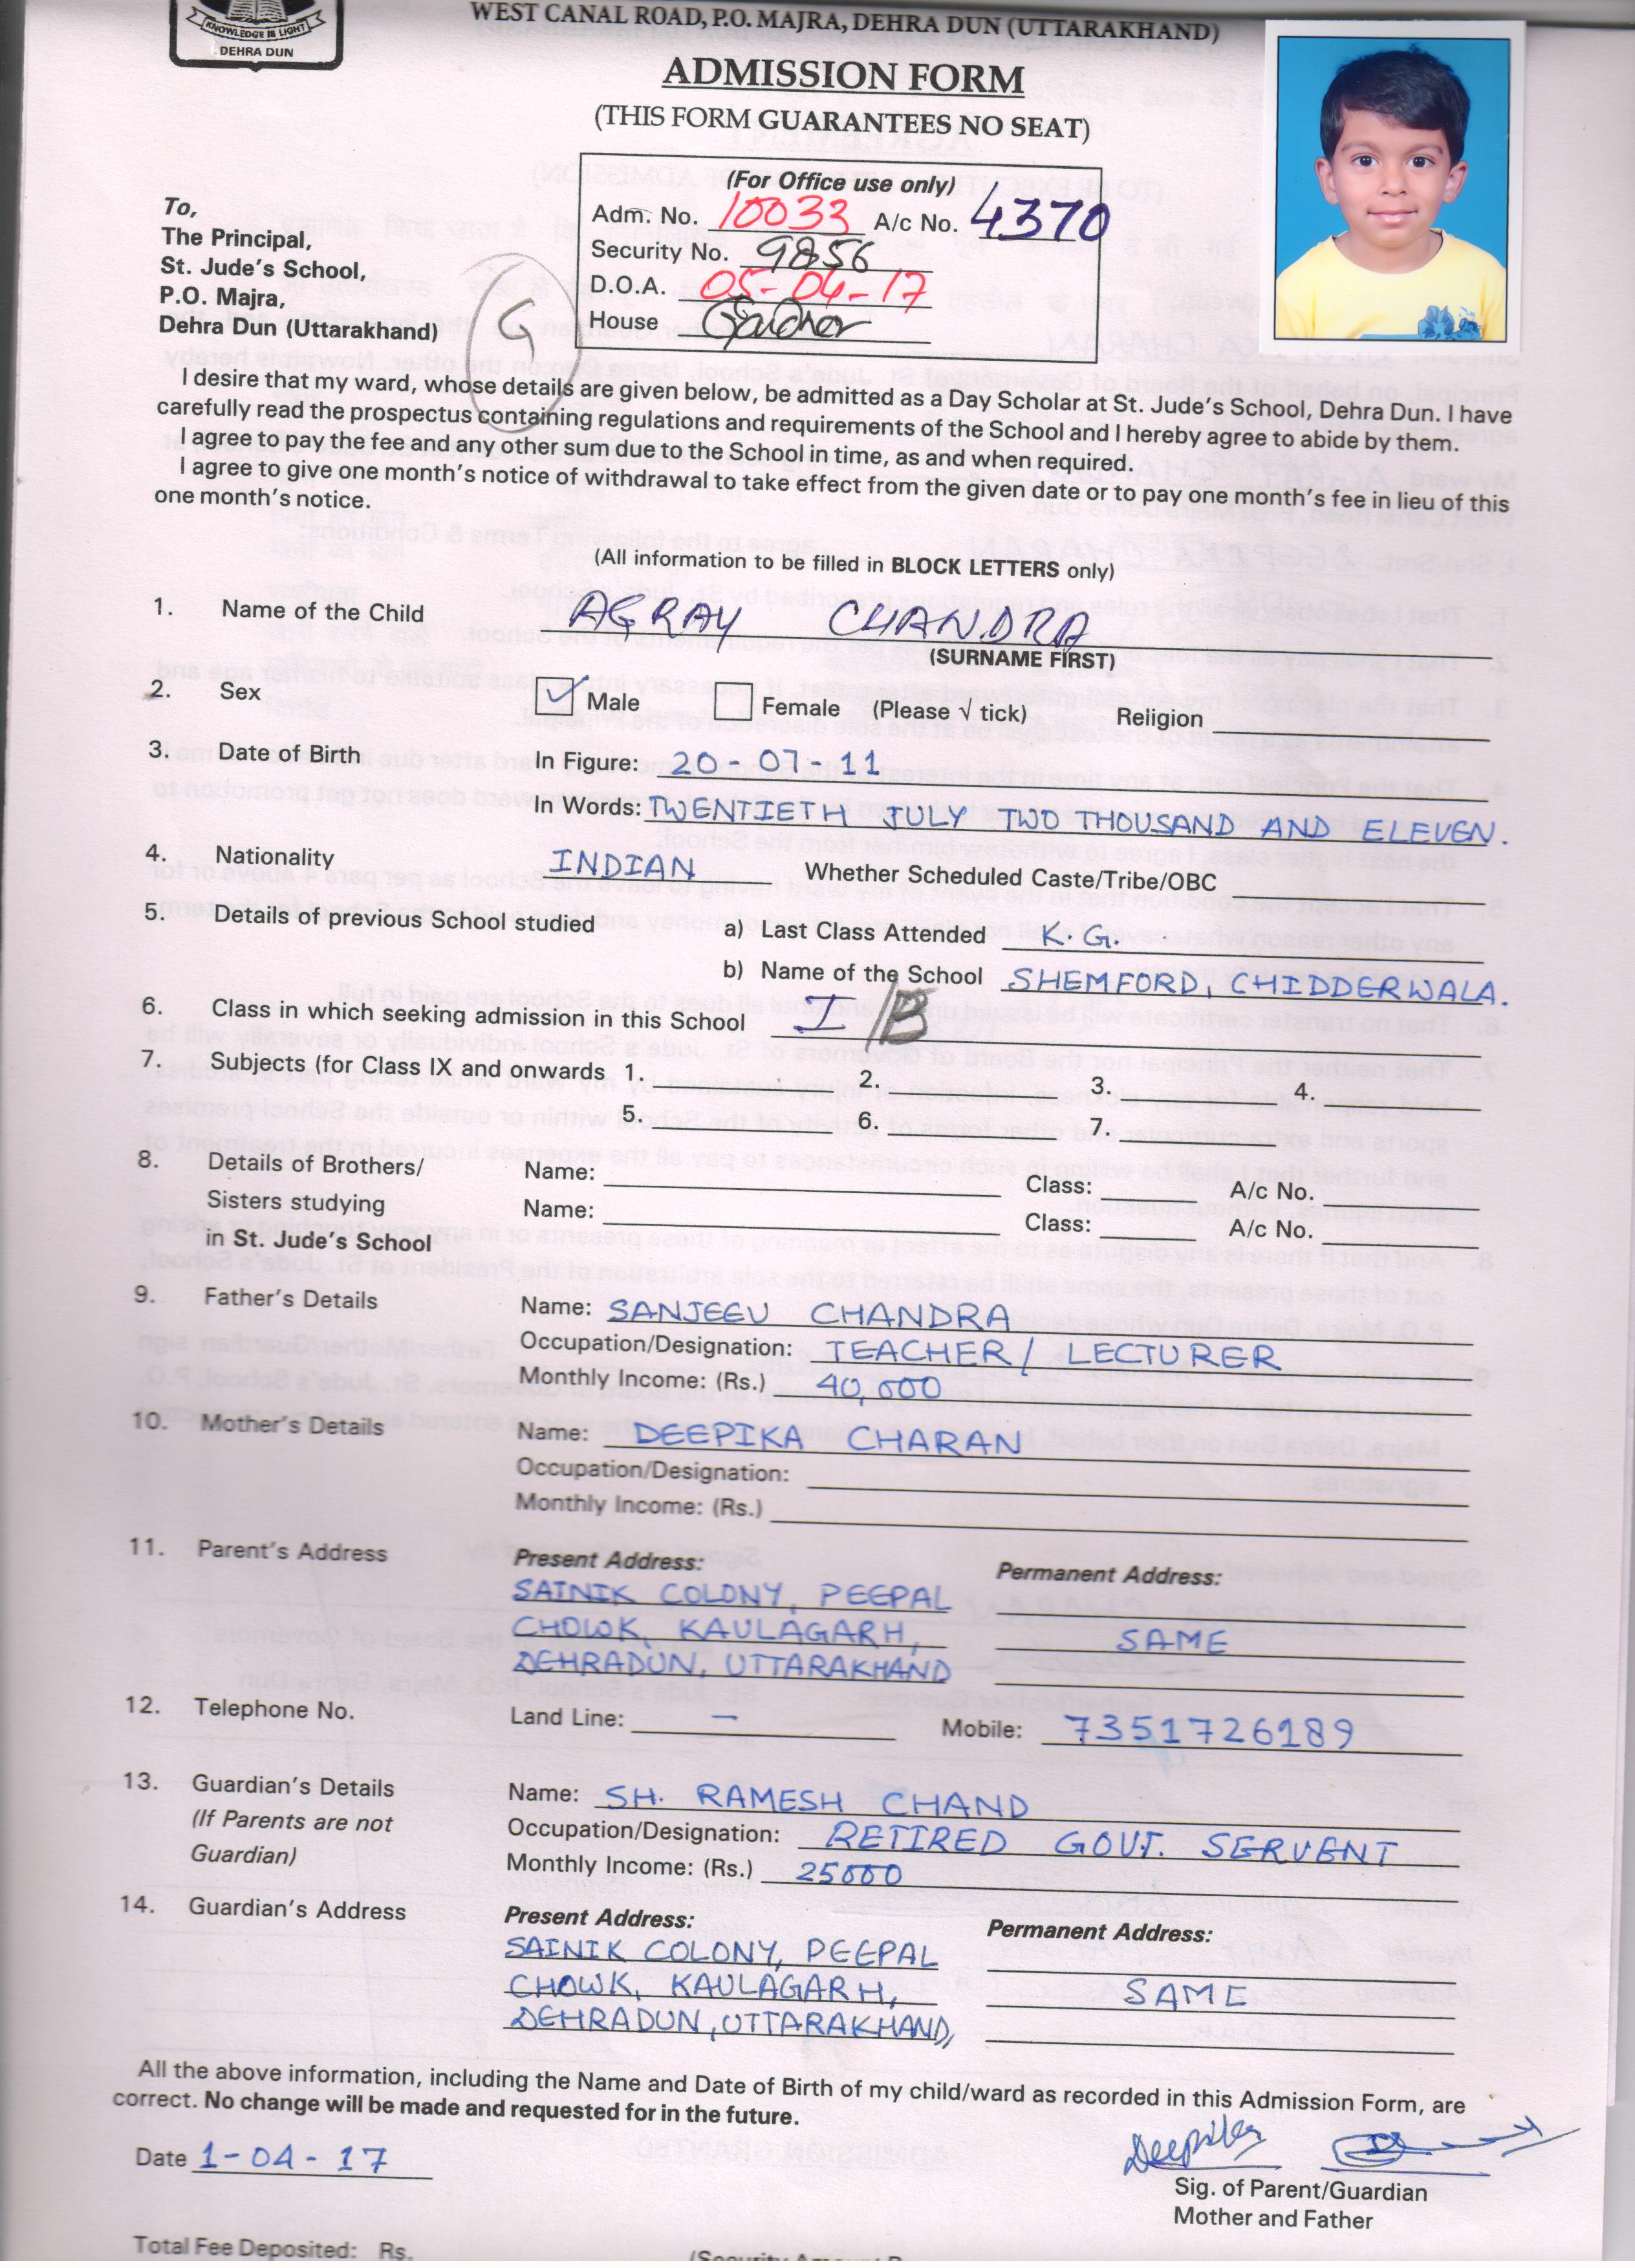 KNOWLEDGE IS LIGHT
DEHRA DUN
WEST CANAL ROAD, P.O. MAJRA, DEHRA DUN (UTTARAKHAND)
ADMISSION FORM
(THIS FORM GUARANTEES NO SEAT)
(For Office use only)
Adm. No. 10033 A/c No. 4370
Security No. 9856
D.O.A. 05-04-17
House
To,
The Principal,
St. Jude's School,
P.O. Majra,
Dehra Dun (Uttarakhand)
G
I desire that my ward, whose details are given below, be admitted as a Day Scholar at St. Jude's School, Dehra Dun. I have
carefully read the prospectus containing regulations and requirements of the School and I hereby agree to abide by them.
I agree to pay the fee and any other sum due to the School in time, as and when required.
I agree to give one month's notice of withdrawal to take effect from the given date or to pay one month's fee in lieu of this
one month's notice.
(All information to be filled in BLOCK LETTERS only)
1. Name of the Child AGRAY CHANDRA
(SURNAME FIRST)
2. Sex Male Female (Please √ tick) Religion
3. Date of Birth In Figure: 20-07-11
In Words: TWENTIETH JULY TWO THOUSAND AND ELEVEN.
4. Nationality INDIAN Whether Scheduled Caste/Tribe/OBC
5. Details of previous School studied a) Last Class Attended K.G.
b) Name of the School SHEMFORD, CHIDDERWALA.
6. Class in which seeking admission in this School I /B
7. Subjects (for Class IX and onwards 1. 2. 3. 4.
5. 6. 7.
8. Details of Brothers/ Name: Class: A/c No.
Sisters studying Name: Class: A/c No.
in St. Jude's School
9. Father's Details Name: SANJEEV CHANDRA
Occupation/Designation: TEACHER/ LECTURER
Monthly Income: (Rs.) 40,000
10. Mother's Details Name: DEEPIKA CHARAN
Occupation/Designation:
Monthly Income: (Rs.)
11. Parent's Address Present Address: Permanent Address:
SAINIK COLONY, PEEPAL
CHOWK, KAULAGARH, SAME
DEHRADUN, UTTARAKHAND
12. Telephone No. Land Line: — Mobile: 7351726189
13. Guardian's Details Name: SH. RAMESH CHAND
(If Parents are not Occupation/Designation: RETIRED GOVT. SERVENT
Guardian) Monthly Income: (Rs.) 25000
14. Guardian's Address Present Address: Permanent Address:
SAINIK COLONY, PEEPAL
CHOWK, KAULAGARH, SAME
DEHRADUN, UTTARAKHAND,
All the above information, including the Name and Date of Birth of my child/ward as recorded in this Admission Form, are
correct. No change will be made and requested for in the future.
Date 1-04-17
Sig. of Parent/Guardian
Mother and Father
Total Fee Deposited: Rs.